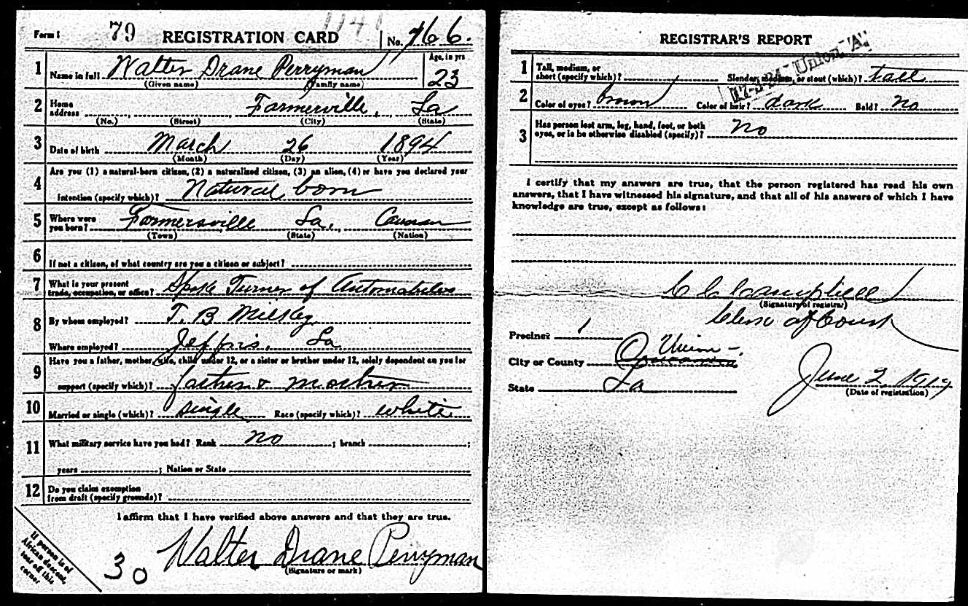 Form 1 79 REGISTRATION CARD No. 766.
1 Name in full Walter Drane Perryman Age, in yrs 23
(Given name) (Family name)
2 Home address Farmerville, La
(No.) (Street) (City) (State)
3 Date of birth March 26 1894
(Month) (Day) (Year)
4 Are you (1) a natural-born citizen, (2) a naturalized citizen, (3) an alien, (4) or have you declared your
intention (specify which)? Natural born
5 Where were you born? Farmersville La,
(Town) (State) (Nation)
6 If not a citizen, of what country are you a citizen or subject?
7 What is your present trade, occupation, or office? Spoke Turner of Automobiles
8 By whom employed? T. B
Where employed? La
9 Have you a father, mother, wife, child under 12, or a sister or brother under 12, solely dependent on you for
support (specify which)? father & mother
10 Married or single (which)? single Race (specify which)? white
11 What military service have you had? Rank no ; branch ;
years ; Nation or State
12 Do you claim exemption from draft (specify grounds)?
I affirm that I have verified above answers and that they are true.
30 Walter Drane Perryman
(Signature or mark)
If person is of
African descent,
tear off this
corner
REGISTRAR'S REPORT
1 Tall, medium, or short (specify which)? Slender, medium, or stout (which)? tall
2 Color of eyes? brown Color of hair? dark Bald? No
3 Has person lost arm, leg, hand, foot, or both eyes, or is he otherwise disabled (specify)? No
I certify that my answers are true, that the person registered has read his own
answers, that I have witnessed his signature, and that all of his answers of which I have
knowledge are true, except as follows:
C C Campbell
(Signature of registrar)
Clerk of Court
Precinct 1
City or County Union
State La
June 2, 1917
(Date of registration)